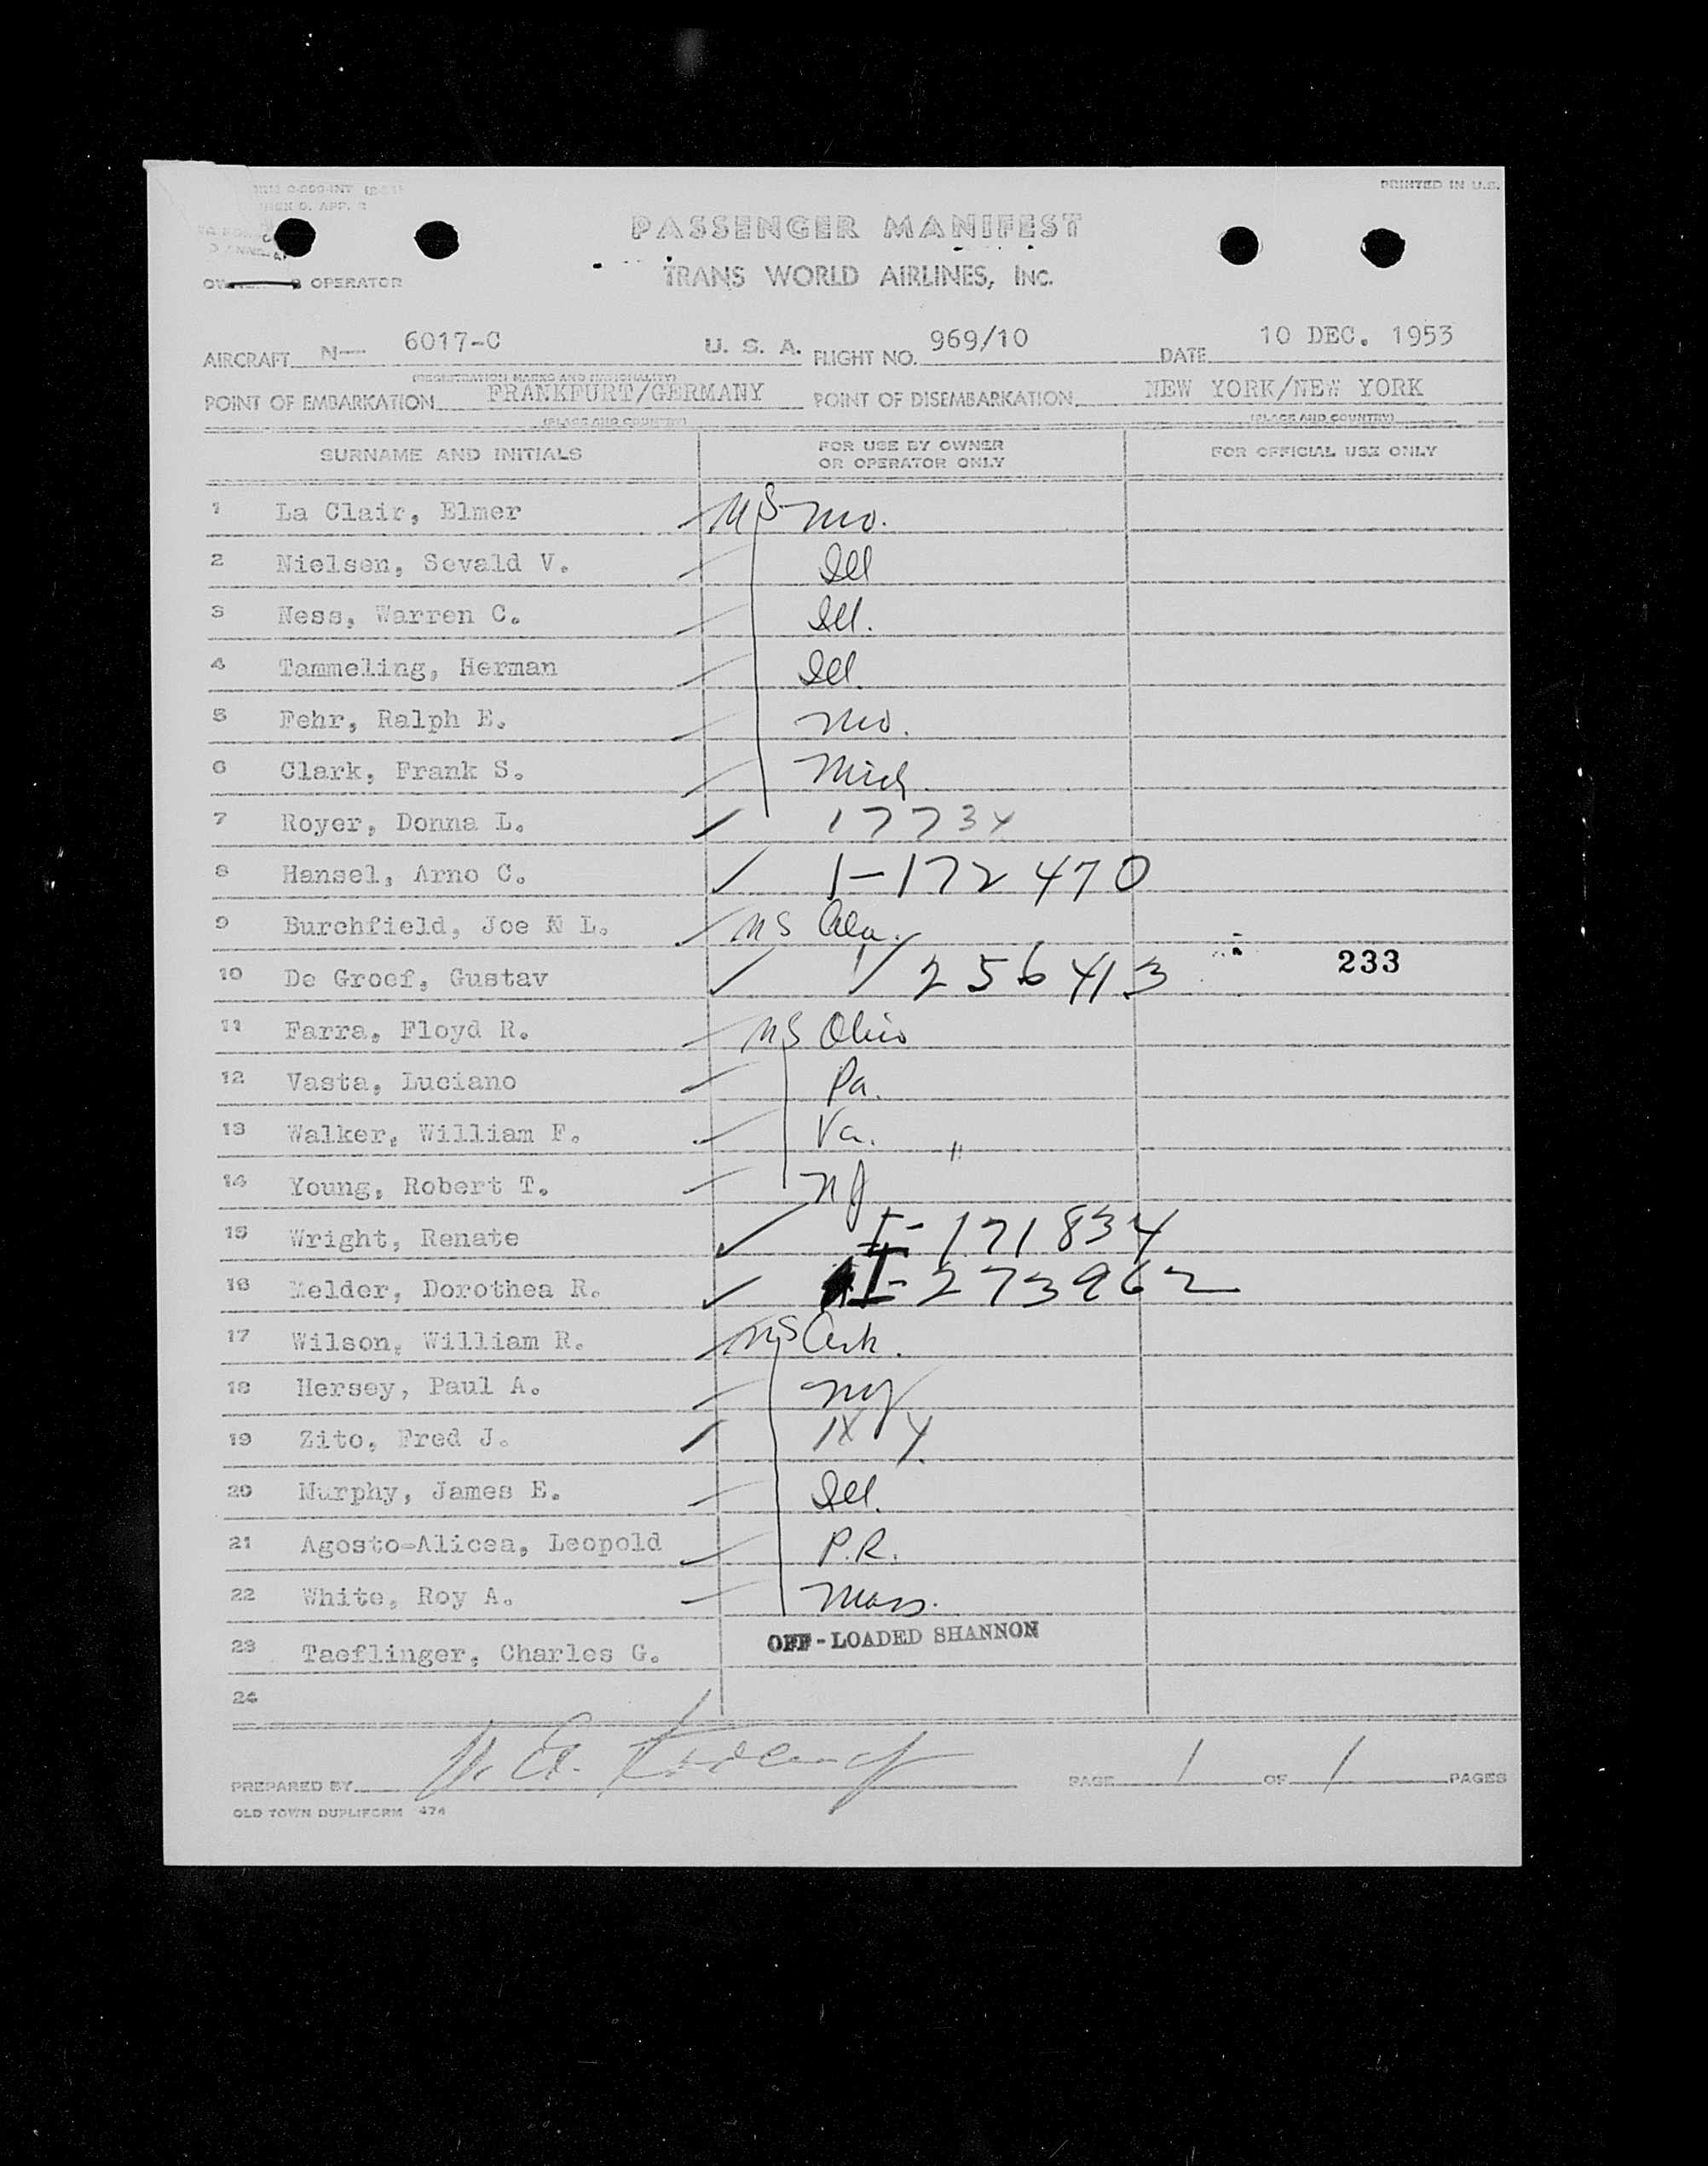 PRINTED IN U.S.
APP.
PASSENGER MANIFEST
TRANS WORLD AIRLINES, INC.
OPERATOR
AIRCRAFT N— 6017-C U. S. A. FLIGHT NO. 969/10 DATE 10 DEC. 1953
(REGISTRATION MARKS AND NATIONALITY)
POINT OF EMBARKATION FRANKFURT/GERMANY POINT OF DISEMBARKATION NEW YORK/NEW YORK
(PLACE AND COUNTRY) (PLACE AND COUNTRY)
SURNAME AND INITIALS FOR USE BY OWNER OR OPERATOR ONLY FOR OFFICIAL USE ONLY
1 La Clair, Elmer Mo.
2 Nielsen, Sevald V. Ill
3 Ness, Warren C. Ill.
4 Tammeling, Herman Ill.
5 Fehr, Ralph E. Mo.
6 Clark, Frank S. Mich
7 Royer, Donna L. 17734
8 Hansel, Arno C. 1-172470
9 Burchfield, Joe N L. Ala.
10 De Groef, Gustav 1/256413 233
11 Farra, Floyd R. Ohio
12 Vasta, Luciano Pa.
13 Walker, William F. Va. "
14 Young, Robert T. NJ
15 Wright, Renate I-171834
16 Melder, Dorothea R. I-273962
17 Wilson, William R. Ark.
18 Hersey, Paul A. NY
19 Zito, Fred J. NY
20 Murphy, James E. Ill.
21 Agosto-Alicea, Leopold P.R.
22 White, Roy A. Mass.
23 Taeflinger, Charles G. OFF-LOADED SHANNON
24
PREPARED BY PAGE 1 OF 1 PAGES
OLD TOWN DUPLIFORM 474